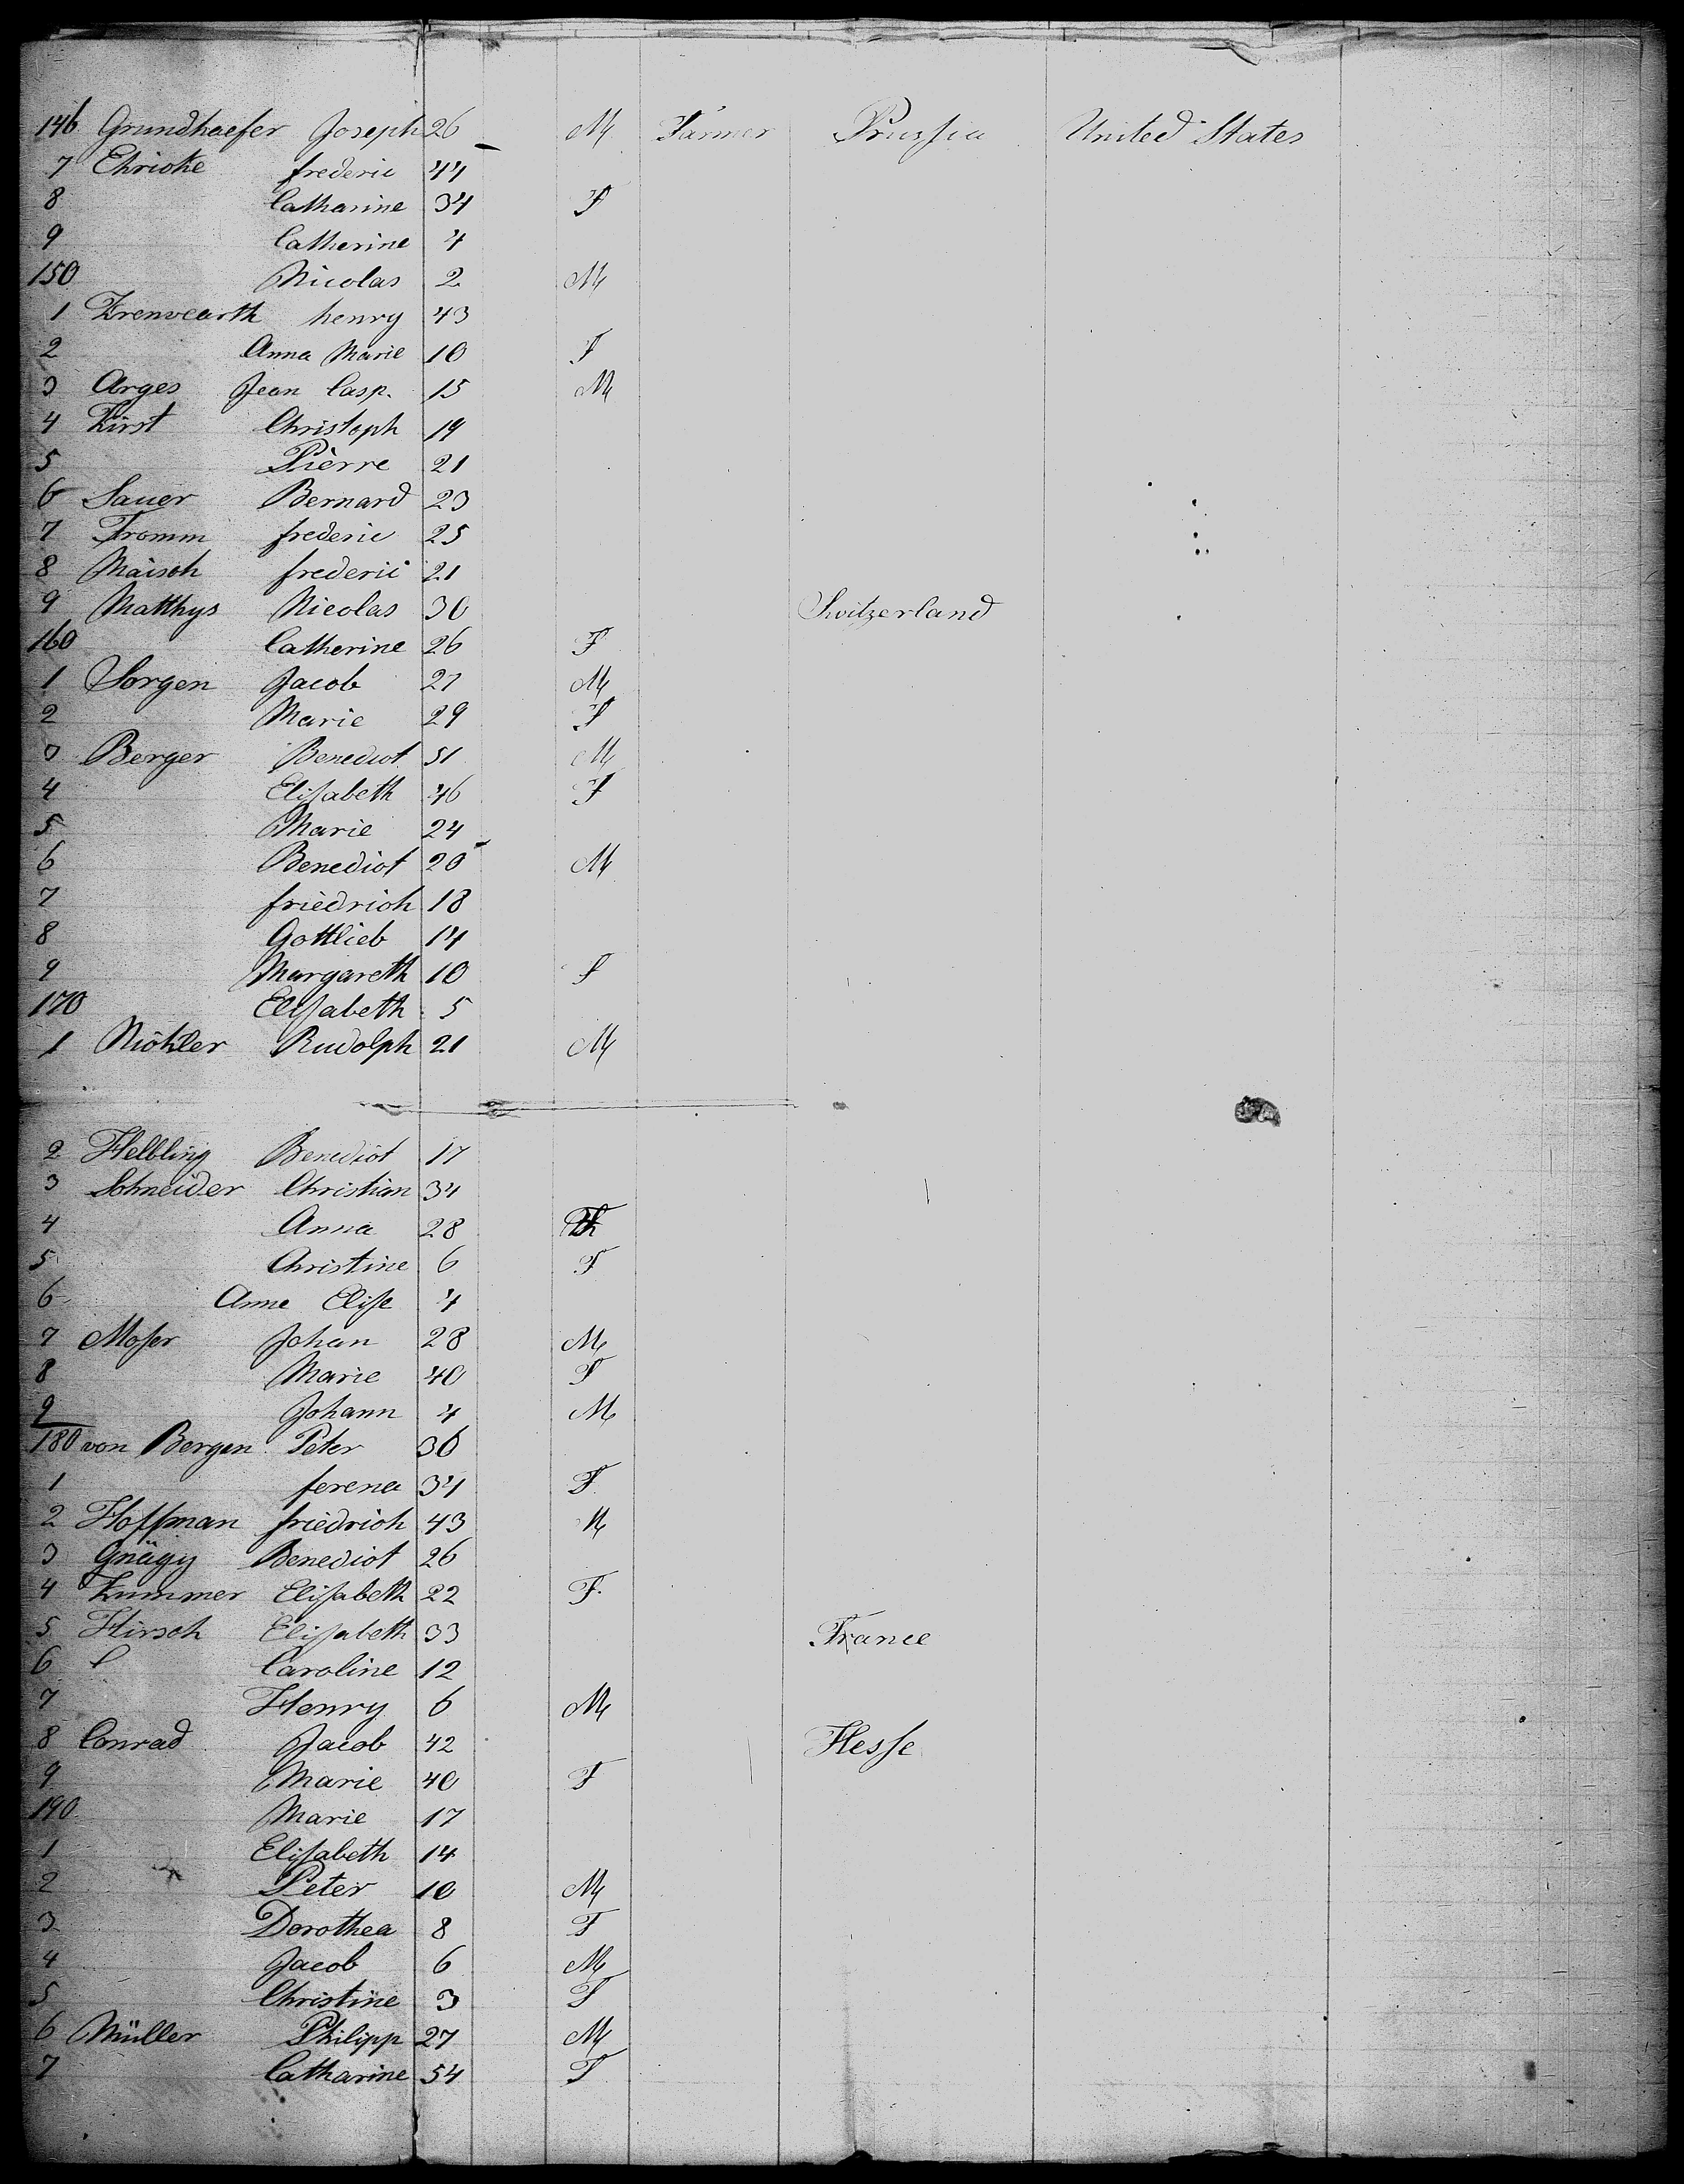 146 Grundhaefer Joseph 26 M Farmer Prussia United States
7 Ehricke frederic 44
8 Catharine 34 F
9 Catherine 4
150 Nicolas 2 M
1 henry 43
2 Anna Marie 10 F
3 Arges Jean Casp. 15 M
4 Fürst Christoph 19
5 Pièrre 21
6 Sauer Bernard 23
7 Fromm frederic 25
8 Maisch frederic 21
9 Matthys Nicolas 30 Switzerland
160 Catherine 26 F
1 Sorgen Jacob 27 M
2 Marie 29 F
3 Berger Benedict 51 M
4 Elisabeth 46 F
5 Marie 24
6 Benedict 20 M
7 friedrich 18
8 Gottlieb 14
9 Margareth 10 F
170 Elisabeth 5
1 Rudolph 21 M
2 Helbling Benedict 17
3 Schneider Christian 34
4 Anna 28 F
5 Christine 6 F
6 Anne Elise 4
7 Moser Johan 28 M
8 Marie 40 F
9 Johann 4 M
180 von Bergen Peter 36
1 ferena 34 F
2 Hoffman friedrich 43 M
3 Gnägy Benedict 26
4 Kummer Elisabeth 22 F.
5 Hirsch Elisabeth 33 France
6 Caroline 12
7 Henry 6 M
8 Conrad Jacob 42 Hesse
9 Marie 40 F
190 Marie 17
1 Elisabeth 14
2 Peter 10 M
3 Dorothea 8 F
4 Jacob 6 M
5 Christine 3 F
6 Müller Philipp 27 M
7 Catharine 54 F